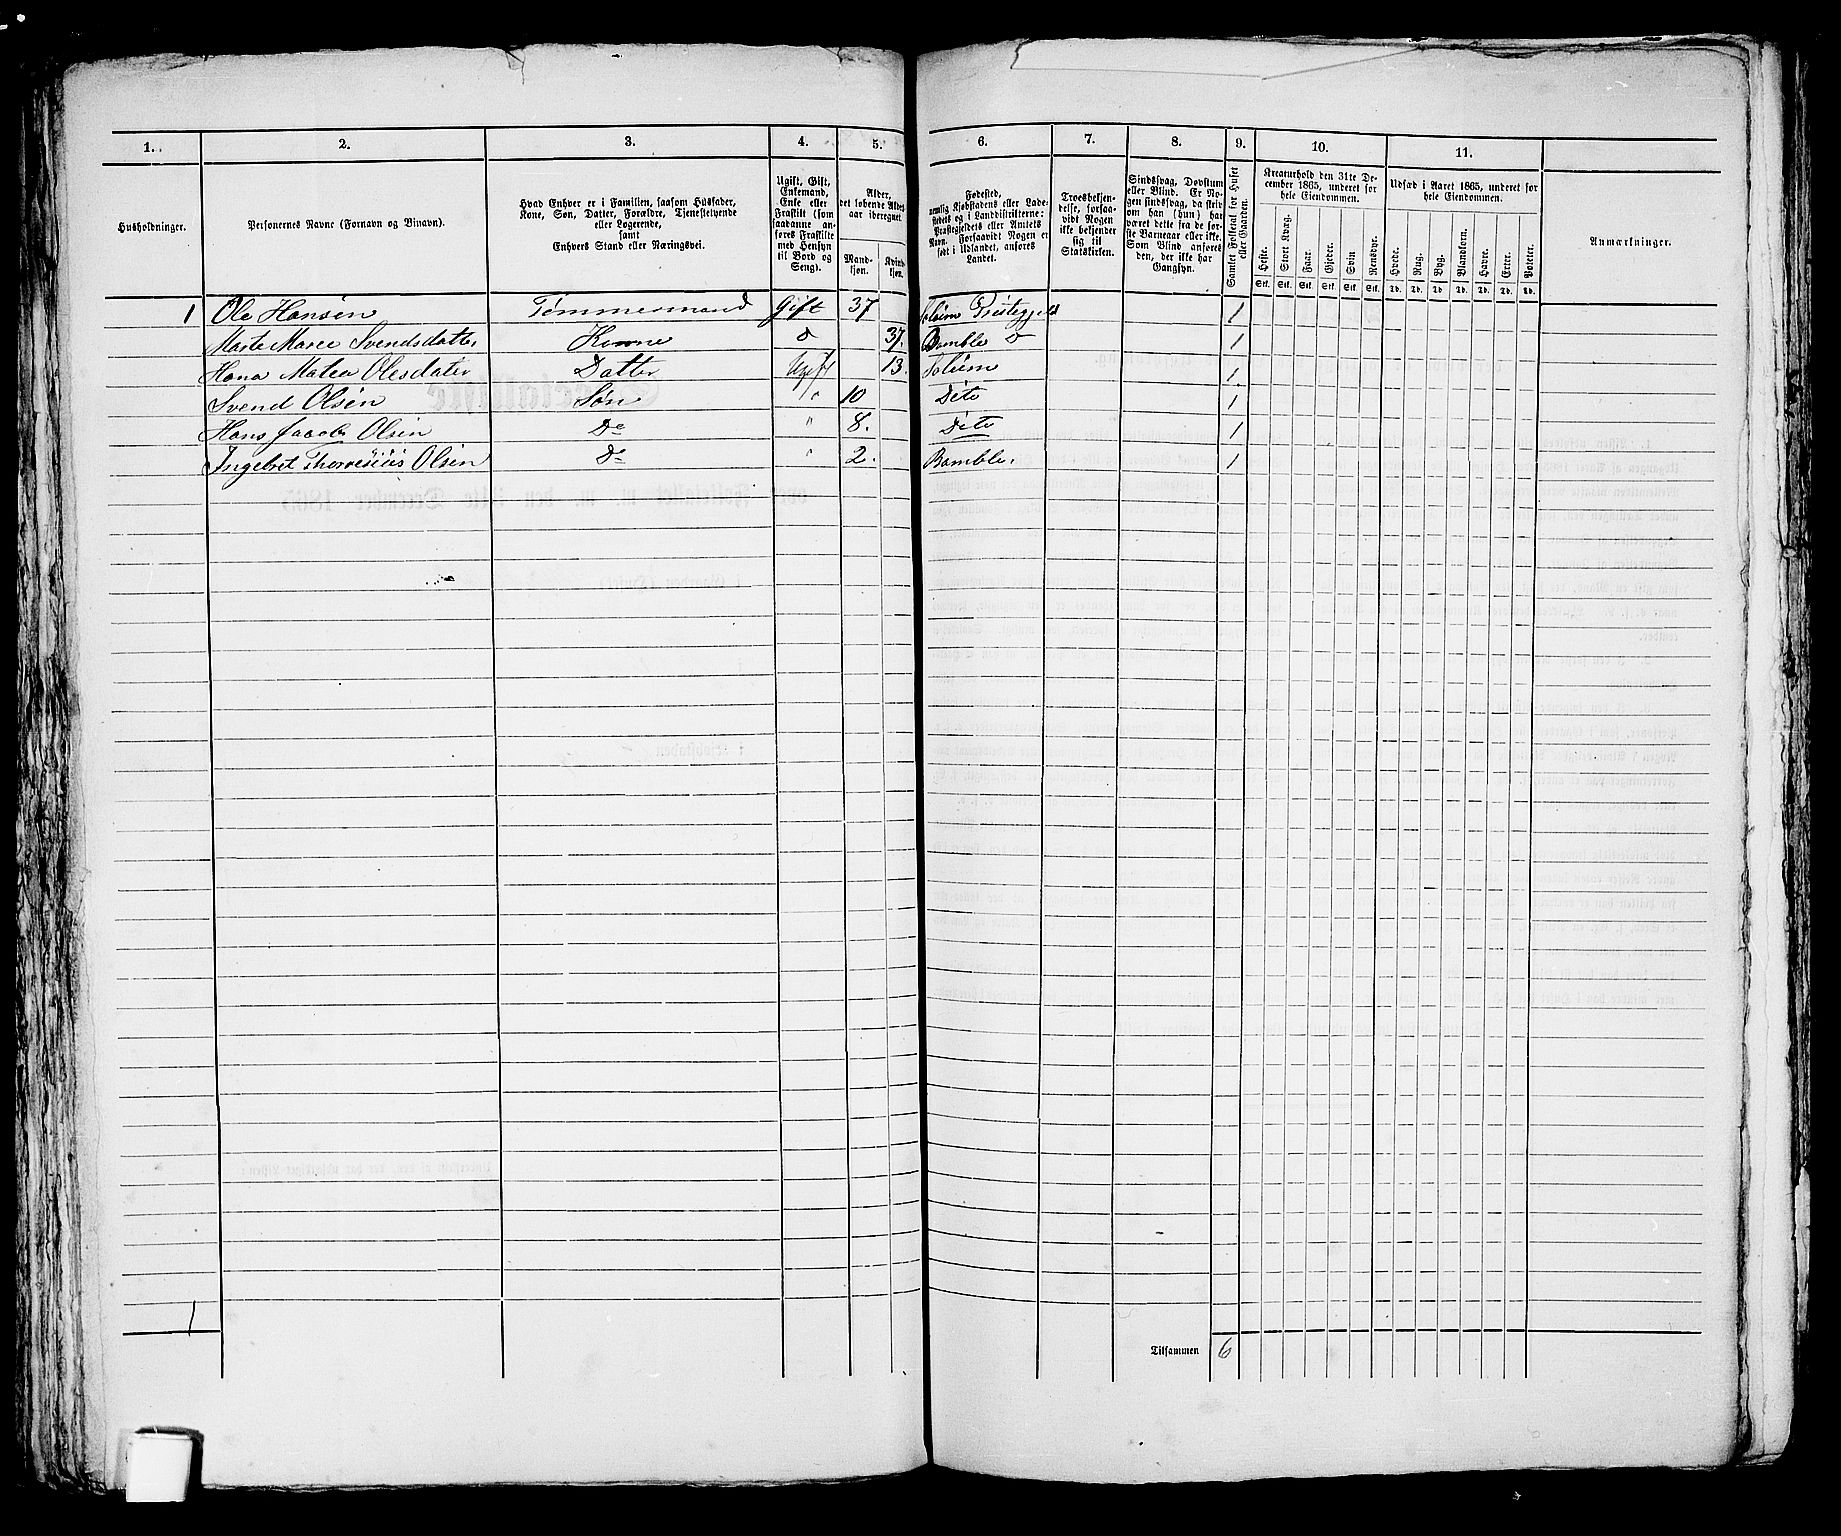 1. 2. 3. 4. 5. 6. 7. 8. 9. 10. 11.
Husholdninger.
Personernes Navne (Fornavn og Binavn).
Hvad Enhver er i Familien, saasom Husfader,
Kone, Søn, Datter, Forældre, Tjenestetyende
eller Logerende,
samt
Enhvers Stand eller Næringsvei.
Ugift, Gift,
Enkemand,
Enke eller
Fraskilt (som
saadanne an-
føres Fraskilte
med Hensyn
til Bord og
Seng).
Alder,
det løbende Alders-
aar iberegnet.
Mand-
kjøn.
Kvind-
kjøn.
Fødested,
nemlig Kjøbstadens eller Lade-
stedets og i Landdistrikterne:
Præstegjeldets eller Amtets
Navn. Forsaavidt Nogen er
født i Udlandet, anføres
Landet.
Troesbekjen-
delse, forsaa-
vidt Nogen
ikke bekjender
sig til
Statskirken.
Sindssvag, Døvstum
eller Blind. Er No-
gen sindssvag, da skriv
om han (hun) har
været dette fra de før-
ste Barneaar eller ikke.
Som Blind anføres
den, der ikke har
Gangsyn.
Samlet Folketal for Huset
eller Gaarden.
Kreaturhold den 31te De-
cember 1865, underet for
hele Eiendommen.
Heste. Stort Kvæg. Faar. Gjeder. Svin Rensdyr.
Stk. Stk. Stk. Stk. Stk. Stk.
Udsæd i Aaret 1865, underet for
hele Eiendommen.
Hvede. Rug. Byg. Blandkorn. Havre. Erter. Poteter.
Td. Td. Td. Td. Td. Td. Td.
Anmærkninger.
1 Ole Hansen Tømmermand Gift 37 Soleim Prestegjeld 1
Marte Maree Svendsdatter Konne d 37. Bamble d 1
Hana Matea Olesdater Datter Ugift 13. Soleim 1.
Svend Olsen Søn " 10 Dito 1
Hans Jacob Olsen De " 8. Dito 1
Ingebret Olsen De " 2. Bamble. 1
1
Tilsammen 6